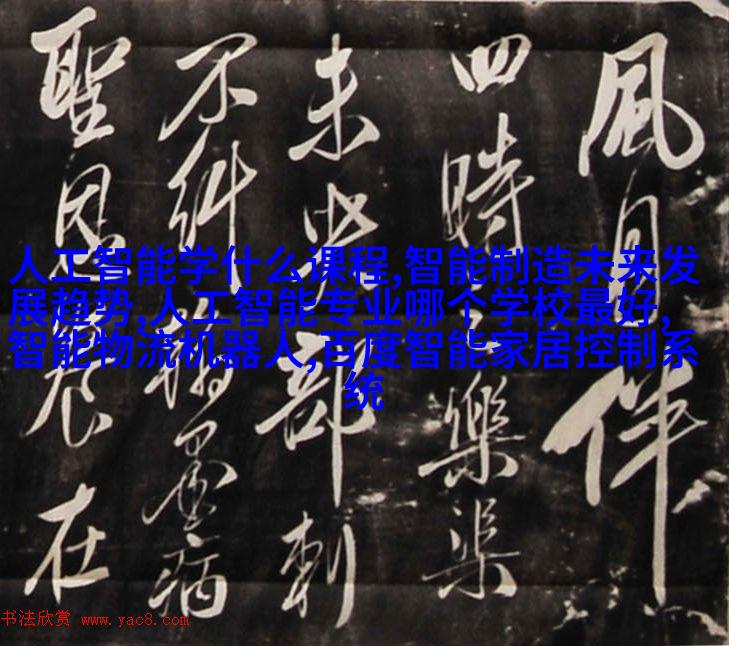 風月伴
四時樂渠
未部刺
不糾墨病
聖恩在
人工智能学什么课程,智能制造未来发
展趋势,人工智能专业哪个学校最好,
智能物流机器人,百度智能家居控制系
统
书法欣赏 www.yac8.com